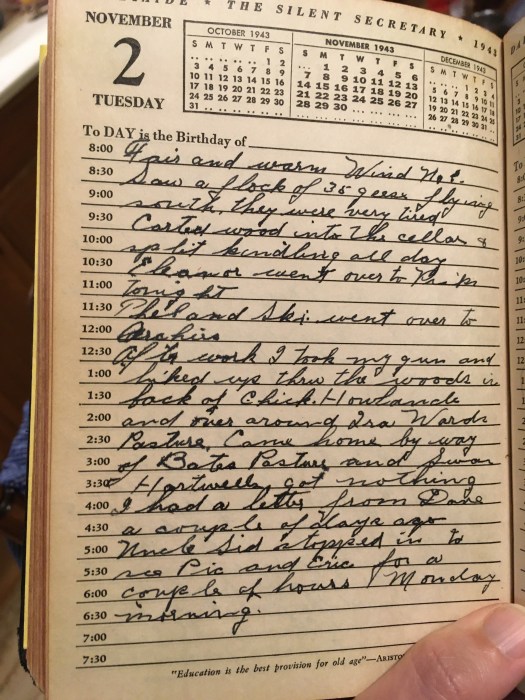 THE SILENT SECRETARY ★ 1943
NOVEMBER
2
TUESDAY
OCTOBER 1943
S M T W T F S
. . . . . . . . . . 1 2
3 4 5 6 7 8 9
10 11 12 13 14 15 16
17 18 19 20 21 22 23
24 25 26 27 28 29 30
31
NOVEMBER 1943
S M T W T F S
. . . 1 2 3 4 5 6
7 8 9 10 11 12 13
14 15 16 17 18 19 20
21 22 23 24 25 26 27
28 29 30
DECEMBER 1943
S M T W T F S
1 2 3 4
5 6 7 8 9 10 11
12 13 14 15 16 17 18
19 20 21 22 23 24 25
26 27 28 29 30 31
To DAY is the Birthday of
8:00 Fair and warm Wind
8:30 Saw a flock of 35 geese flying
9:00 south, they were very tired
9:30 Carted wood into the cellar &
10:00 split kindling all day
10:30 Eleanor went over to
11:00 tonight
11:30 Phil and Ski went over to
12:00
12:30 After work I took my gun and
1:00 hiked up thru the woods in
1:30 back of Chick Howlands
2:00 and over around Ira Wards
2:30 Pasture, Came home by way
3:00 of Bates Pasture and Swan
3:30 Hartwells, got nothing
4:00 I had a letter from Dave
4:30 a couple of days ago
5:00 Uncle Sid stopped in to
5:30 see Pic and Eric for a
6:00 couple of hours Monday
6:30 morning.
7:00
7:30
"Education is the best provision for old age"—ARISTO